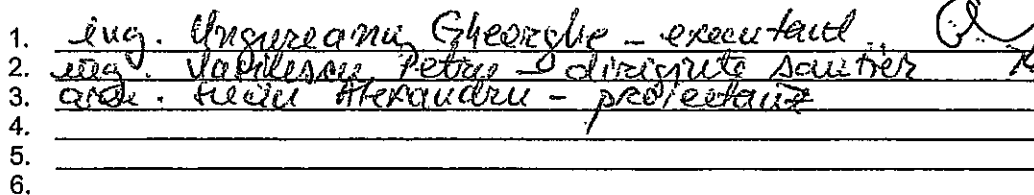 1. ing. Ungureanu Gheorghe - executant
2. ing. Vasilescu Petru - diriginte santier
3. arh. Alexandru - proiectant
4.
5.
6.